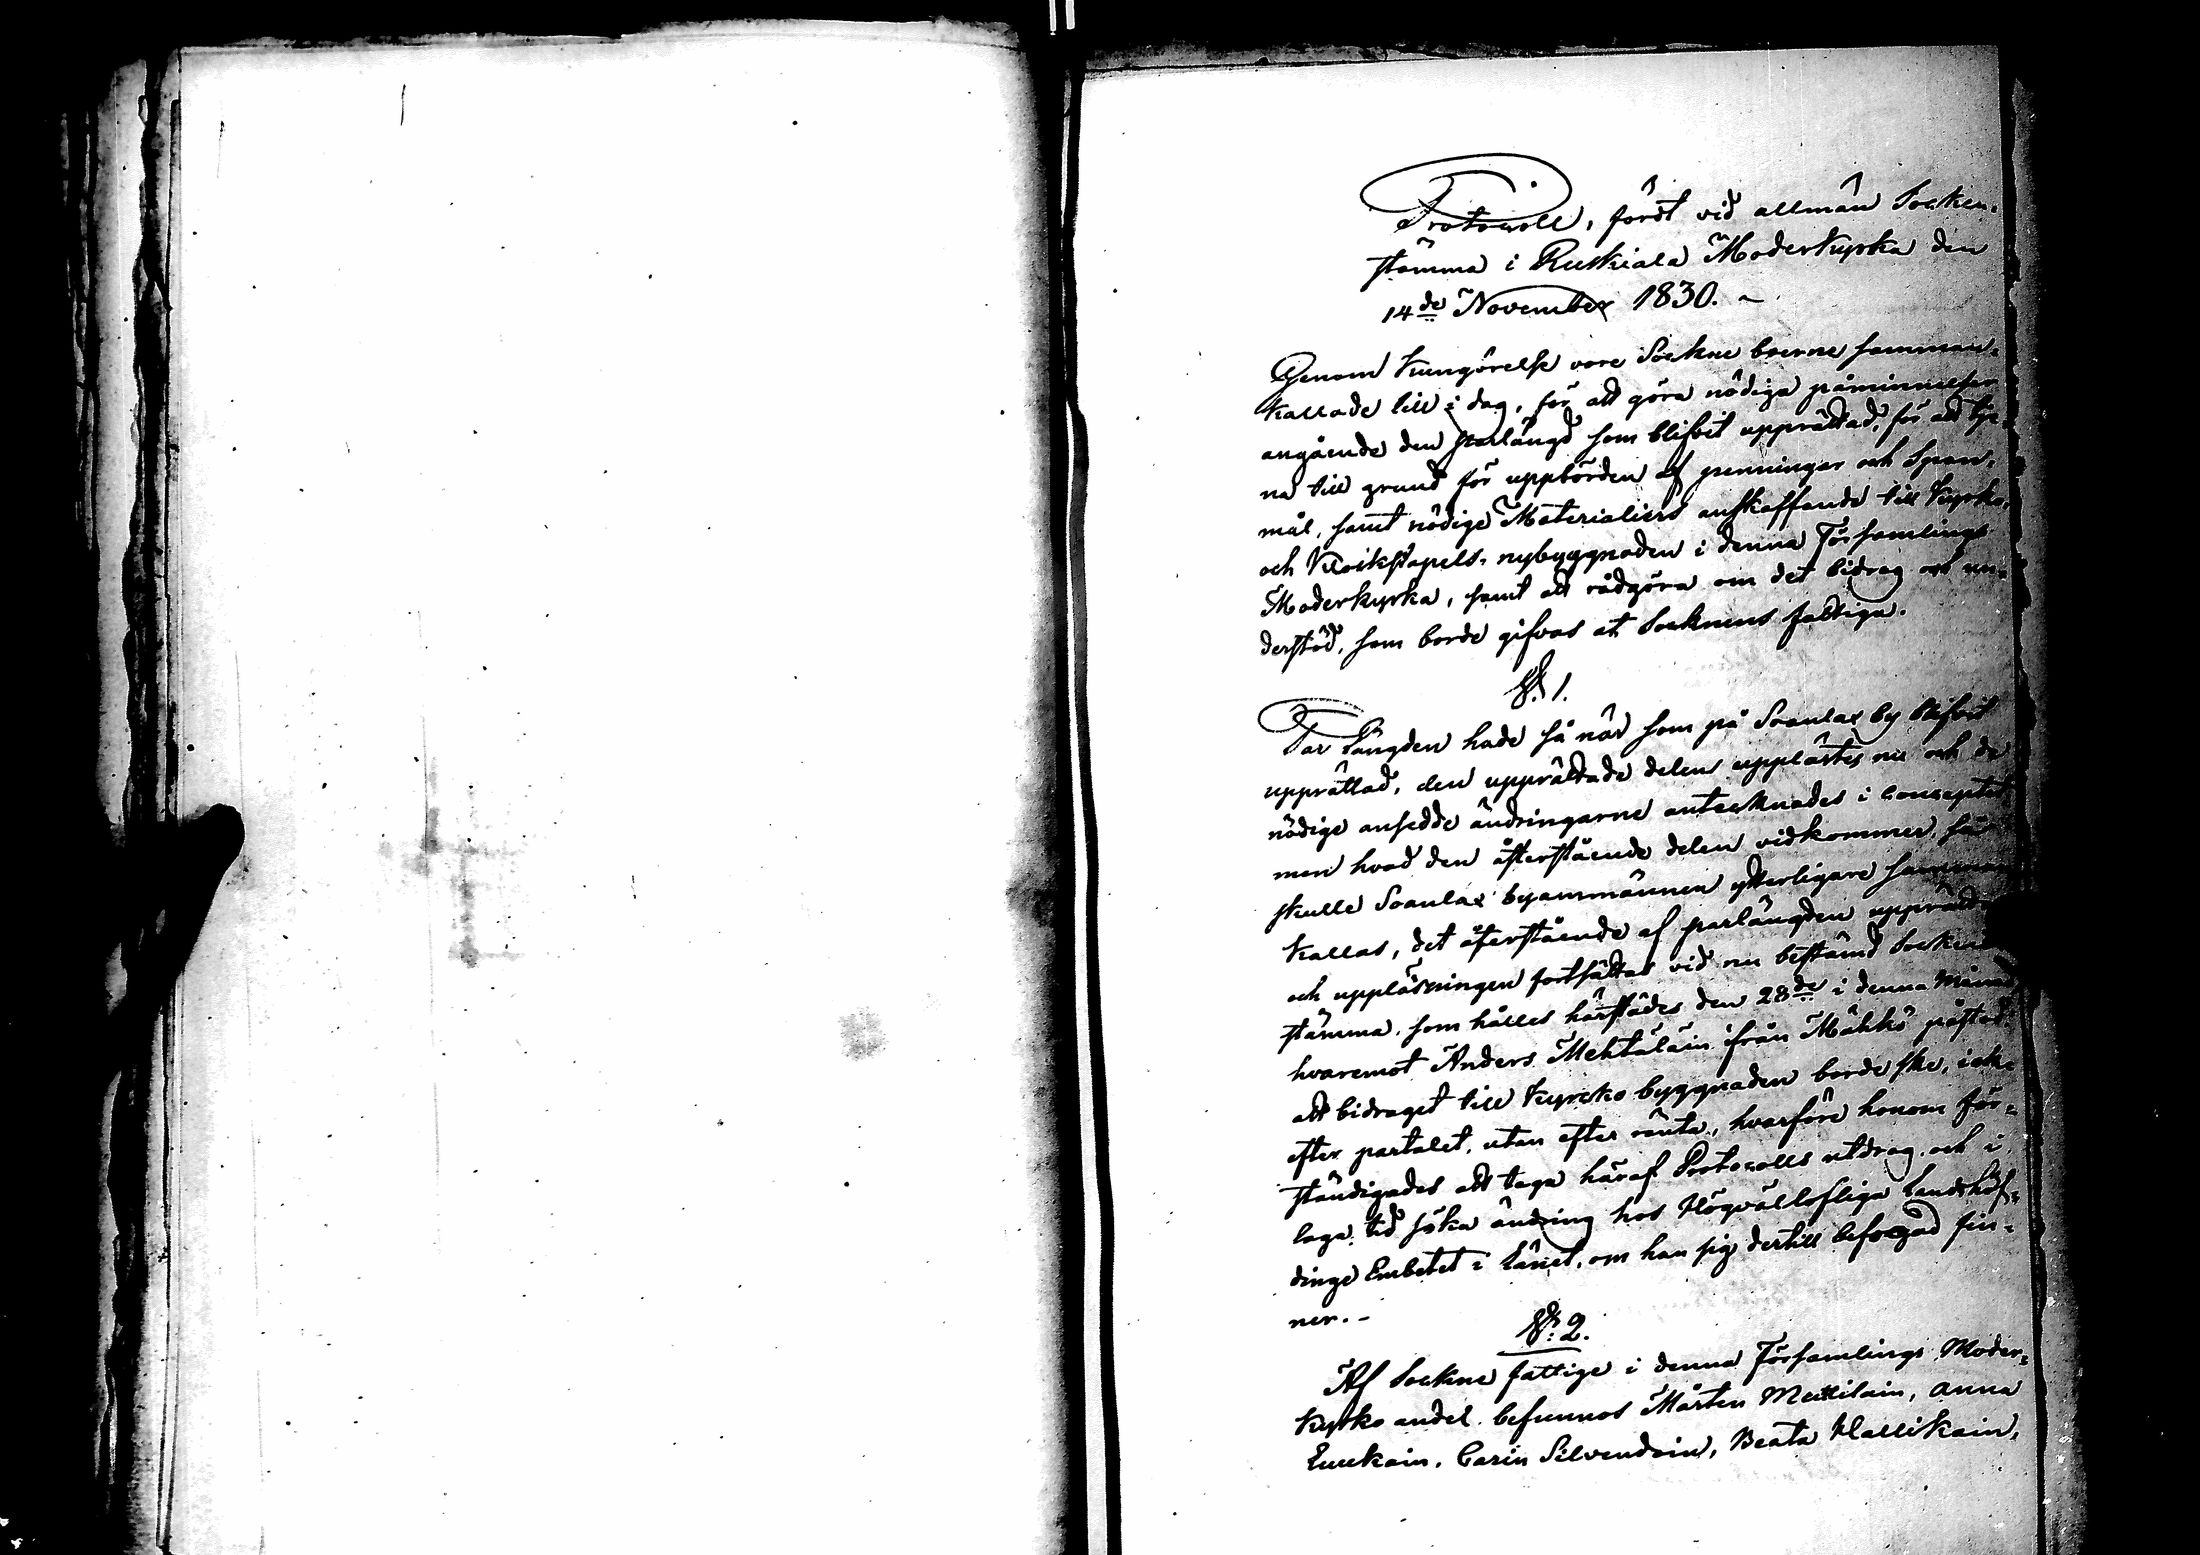 Protocoll, fördt vid allmän Socken-
stämma i Ruskiala Moderkyrka den
14de November 1830. -
Genom Kungörelse vore Sockne boerne samman-
kallade till i dag, för att göra nödiga påminnelser
angående den parlängd som blifvit upprättad, för att tje-
na till grund för uppbörden af penningar och Span-
mål, samt nödige Materialiers anskaffande till Kyrko-
och Klockstapels-nybyggnaden i denna Församlings
Moderkyrka, samt att rådgöra om det bidrag och un-
derstöd, som borde gifvas åt Socknens fattiga.
§. 1.
Par Längden hade så när som på Soanlax by blifvit
upprättad, den upprättade delen upplästes nu och de
nödige ansedde ändringarne antecknades i Conceptet,
men hvad den åfterstående delen vidkommer, så
skulle Soanlax byamännen ytterligare samman
kallas, det återstående af parlängden upprättas
och uppläsningen fortsättas vid nu bestämd Socken
stämma, som hålles härstädes den 28de i denna Månad
hvaremot Anders Mehtäläin ifrån Mähkö påstod
att bidraget till Kyrcko byggnaden borde ske, icke
efter partalet, utan efter ränta, hvarföre honom för=
ständigades att taga häraf Protocolls utdrag och i
laga tid söka ändring hos Högvällofliga Landshöf=
dinge Embetet i Länet, om han sig dertill befogad fin=
ner. -
§. 2.
Af Sockne fattige i denna Församlings Moder=
kyrko andel befunnos Mårten Mattilain, Anna
Carin Silvendoin, Beata Hallikain,